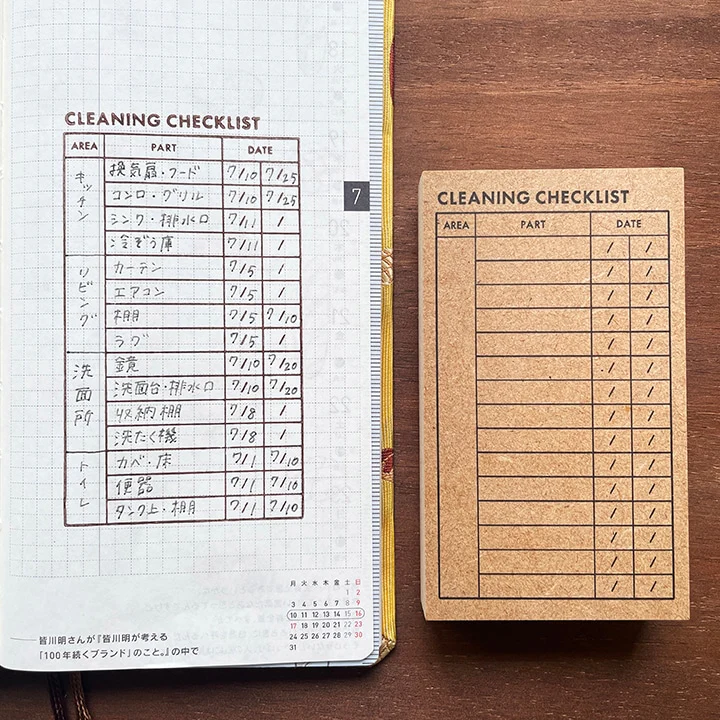 CLEANING CHECKLIST
AREA PART DATE
キッチン
換気扇・フード 7/10 7/25
コンロ・グリル 7/10 7/25
シンク・排水口 7/11 /
冷ぞう庫 7/11 /
リビング
カーテン 7/5 /
エアコン 7/5 /
棚 7/5 7/10
ラグ 7/5 /
洗面所
鏡 7/10 7/20
洗面台・排水口 7/10 7/20
収納棚 7/8 /
洗たく機 7/8 /
トイレ
カベ・床 7/1 7/10
便器 7/1 7/10
タンク上・棚 7/1 7/10
7
月 火 水 木 金 土 日
1 2
3 4 5 6 7 8 9
10 11 12 13 14 15 16
17 18 19 20 21 22 23
24 25 26 27 28 29 30
31
皆川明さんが『皆川明が考える
「100年続くブランド」のこと。』の中で
CLEANING CHECKLIST
AREA PART DATE
/ /
/ /
/ /
/ /
/ /
/ /
/ /
/ /
/ /
/ /
/ /
/ /
/ /
/ /
/ /